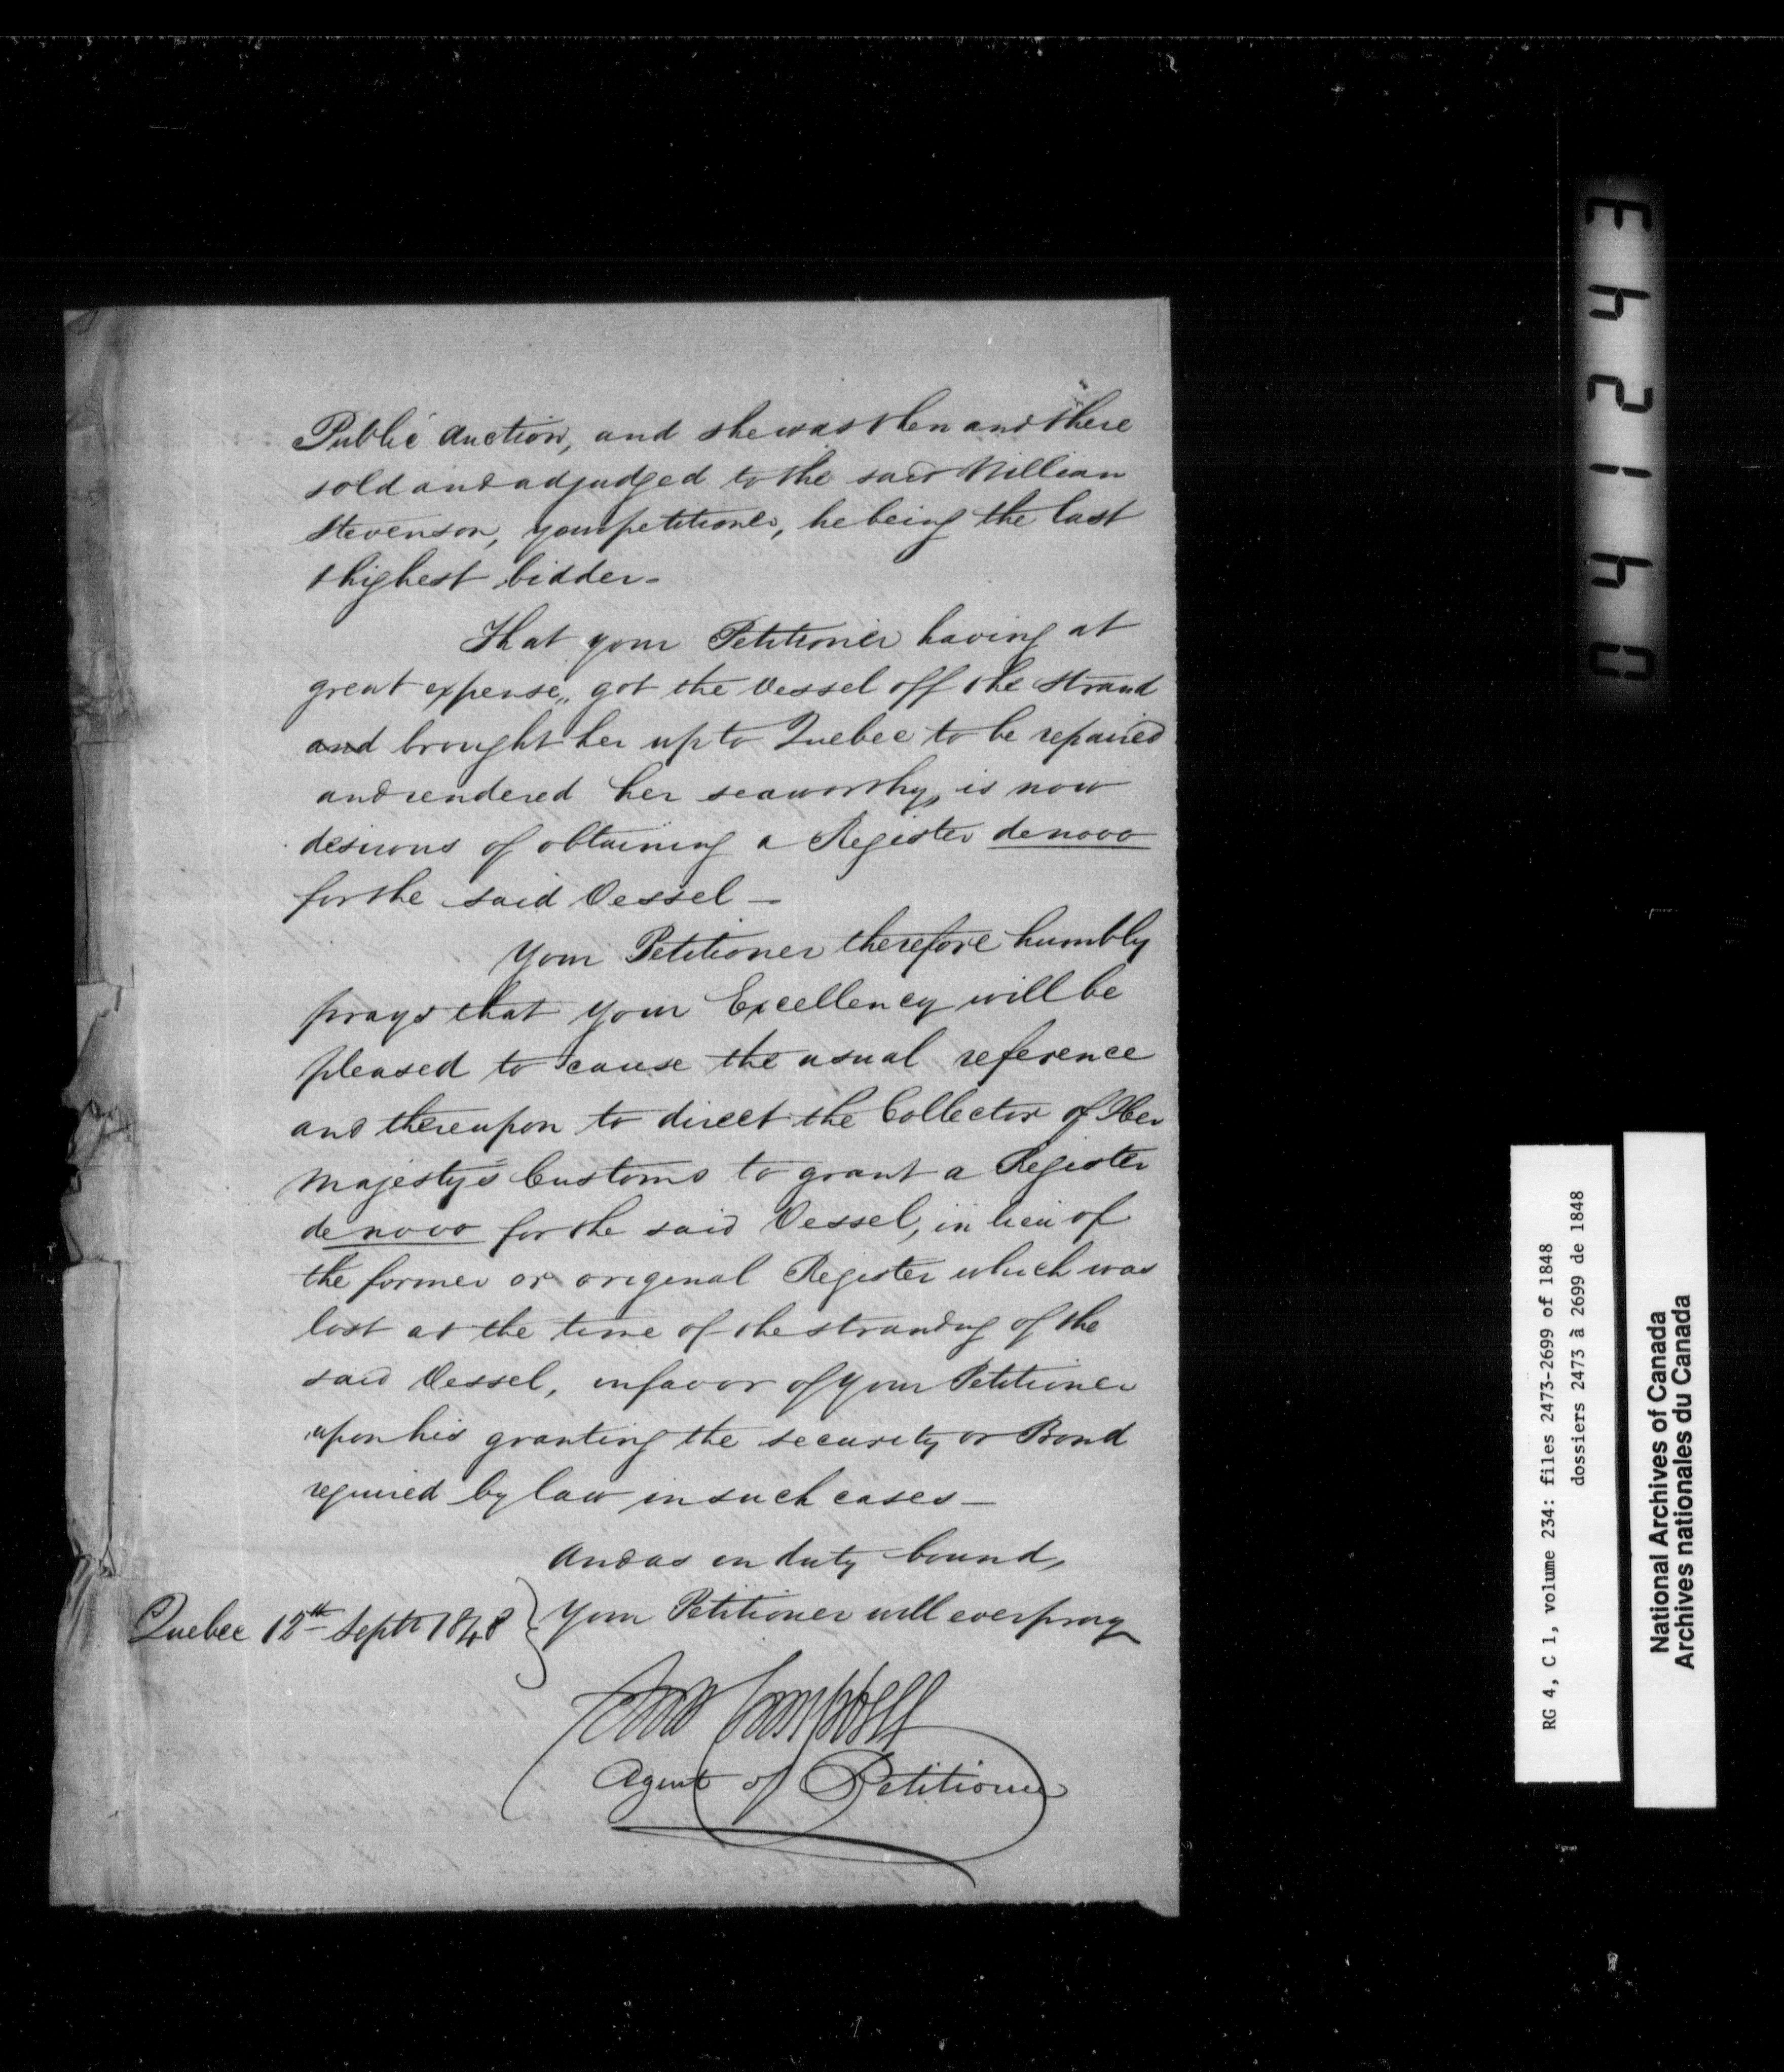 Public Auction, and she was then and there
sold and adjudged to the said William
Stevenson, your petitioner, he being the last
& highest bidder-
That your Petitioner having at
great expense,, got the Vessel off the Strand
and brought her up to Quebec to be repaired
and rendered her seaworthy, is now
desirous of obtaining a Register de novo
for the said Vessel —
Your Petitioner therefore humbly
prays that your Excellency will be
pleased to cause the usual reference
and thereupon to direct the Collector of Her
Majesty's Customs to grant a Register
de novo for the said Vessel, in lieu of
the former or original Register which was
lost at the time of the stranding of the
said Vessel, in favor of your Petitioner
upon his granting the security or Bond
required by law in such cases —
And as in duty bound,
Your Petitioner will ever pray
Quebec 12th Septr 1848
Campbell
Agent of Petitioner
042143
RG 4, C 1, volume 234: files 2473-2699 of 1848
dossiers 2473 à 2699 de 1848
National Archives of Canada
Archives nationales du Canada